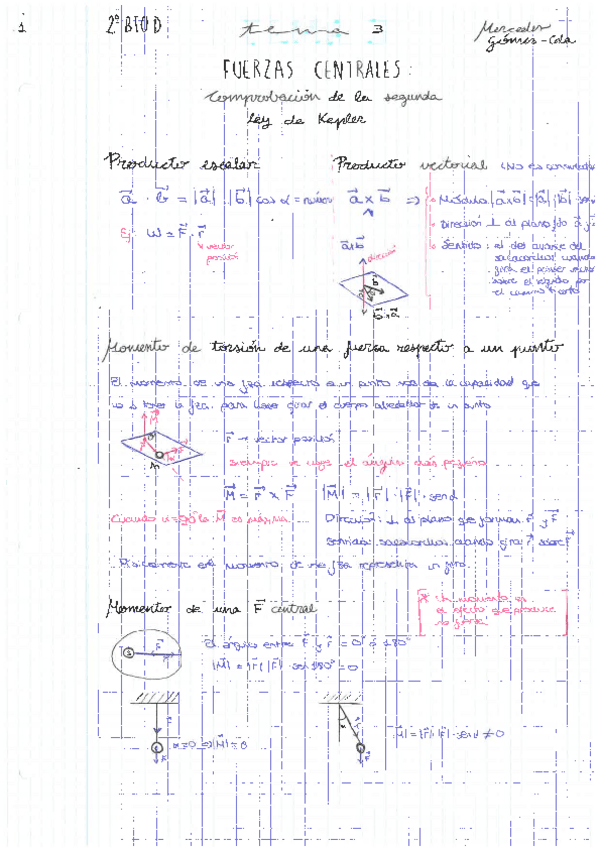 1 2º BTO D tema 3 Mercedes Gómez-Cola
FUERZAS CENTRALES:
Comprobación de la segunda
ley de Kepler
Producto escalar Producto vectorial (No es conmutativo
a · b = |a| · |b| cos α = número a x b => Módulo |a x b| = |a| · |b| · sen
Dirección ⊥ al plano fdo a y
Ej W = F · r
vector posición
a x b
dirección
Sentido: el del avance del
sacacorchos cuando
gira el primer
sobre el segundo por
el camino + corto
Momento de torsión de una fuerza respecto a un punto
El momento de una fza respecto a un punto nos da la capacidad que
tiene la fza para hacer girar el cuerpo alrededor de un punto
r → vector posición
siempre se coge el ángulo más pequeño
M = r x F |M| = |r| · |F| · send
Cuando α = 90º la M es máxima Dirección: ⊥ al plano que forman r y F
Sentido: sacacorchos cuando gira r sobre F
Físicamente el momento de una fza representa un giro.
Momento de una F central
* Un momento es
el efecto que produce
la fuerza
El ángulo entre F y r = 0º ó 180º
|M| = |F| |r| · sen 180º = 0
α = 0 => |M| = 0
|M| = |F| · |r| · send ≠ 0